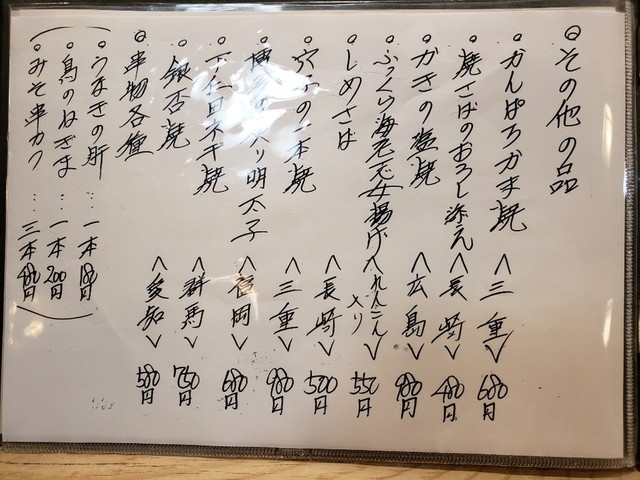 ◎その他の品
○かんぱちかま焼 <三重> 680円
○焼さばのおろし添え <長崎> 480円
○かきの塩焼 <広島> 980円
○ふっくら海老しんじょ揚げ <れんこん入り> 550円
○しめさば <長崎> 500円
○穴子の一本焼 <三重> 980円
○博多の大川明太子 <福岡> 680円
○下仁田ネギ焼 <群馬> 750円
○銀杏焼 <愛知> 580円
◎串物各種
○うなぎの肝…一本180円
○鳥のねぎま…一本200円
○みそ串カツ…三本480円